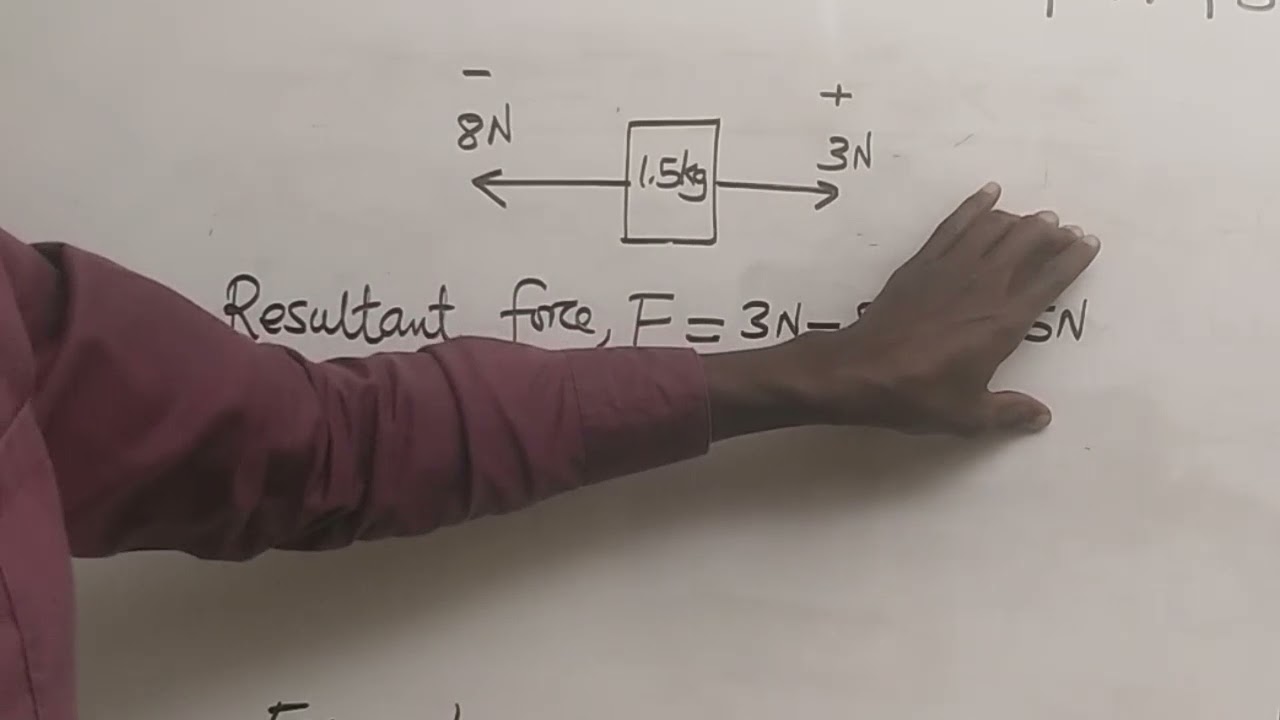 - +
8N 1.5kg 3N
Resultant force, F = 3N - 5N